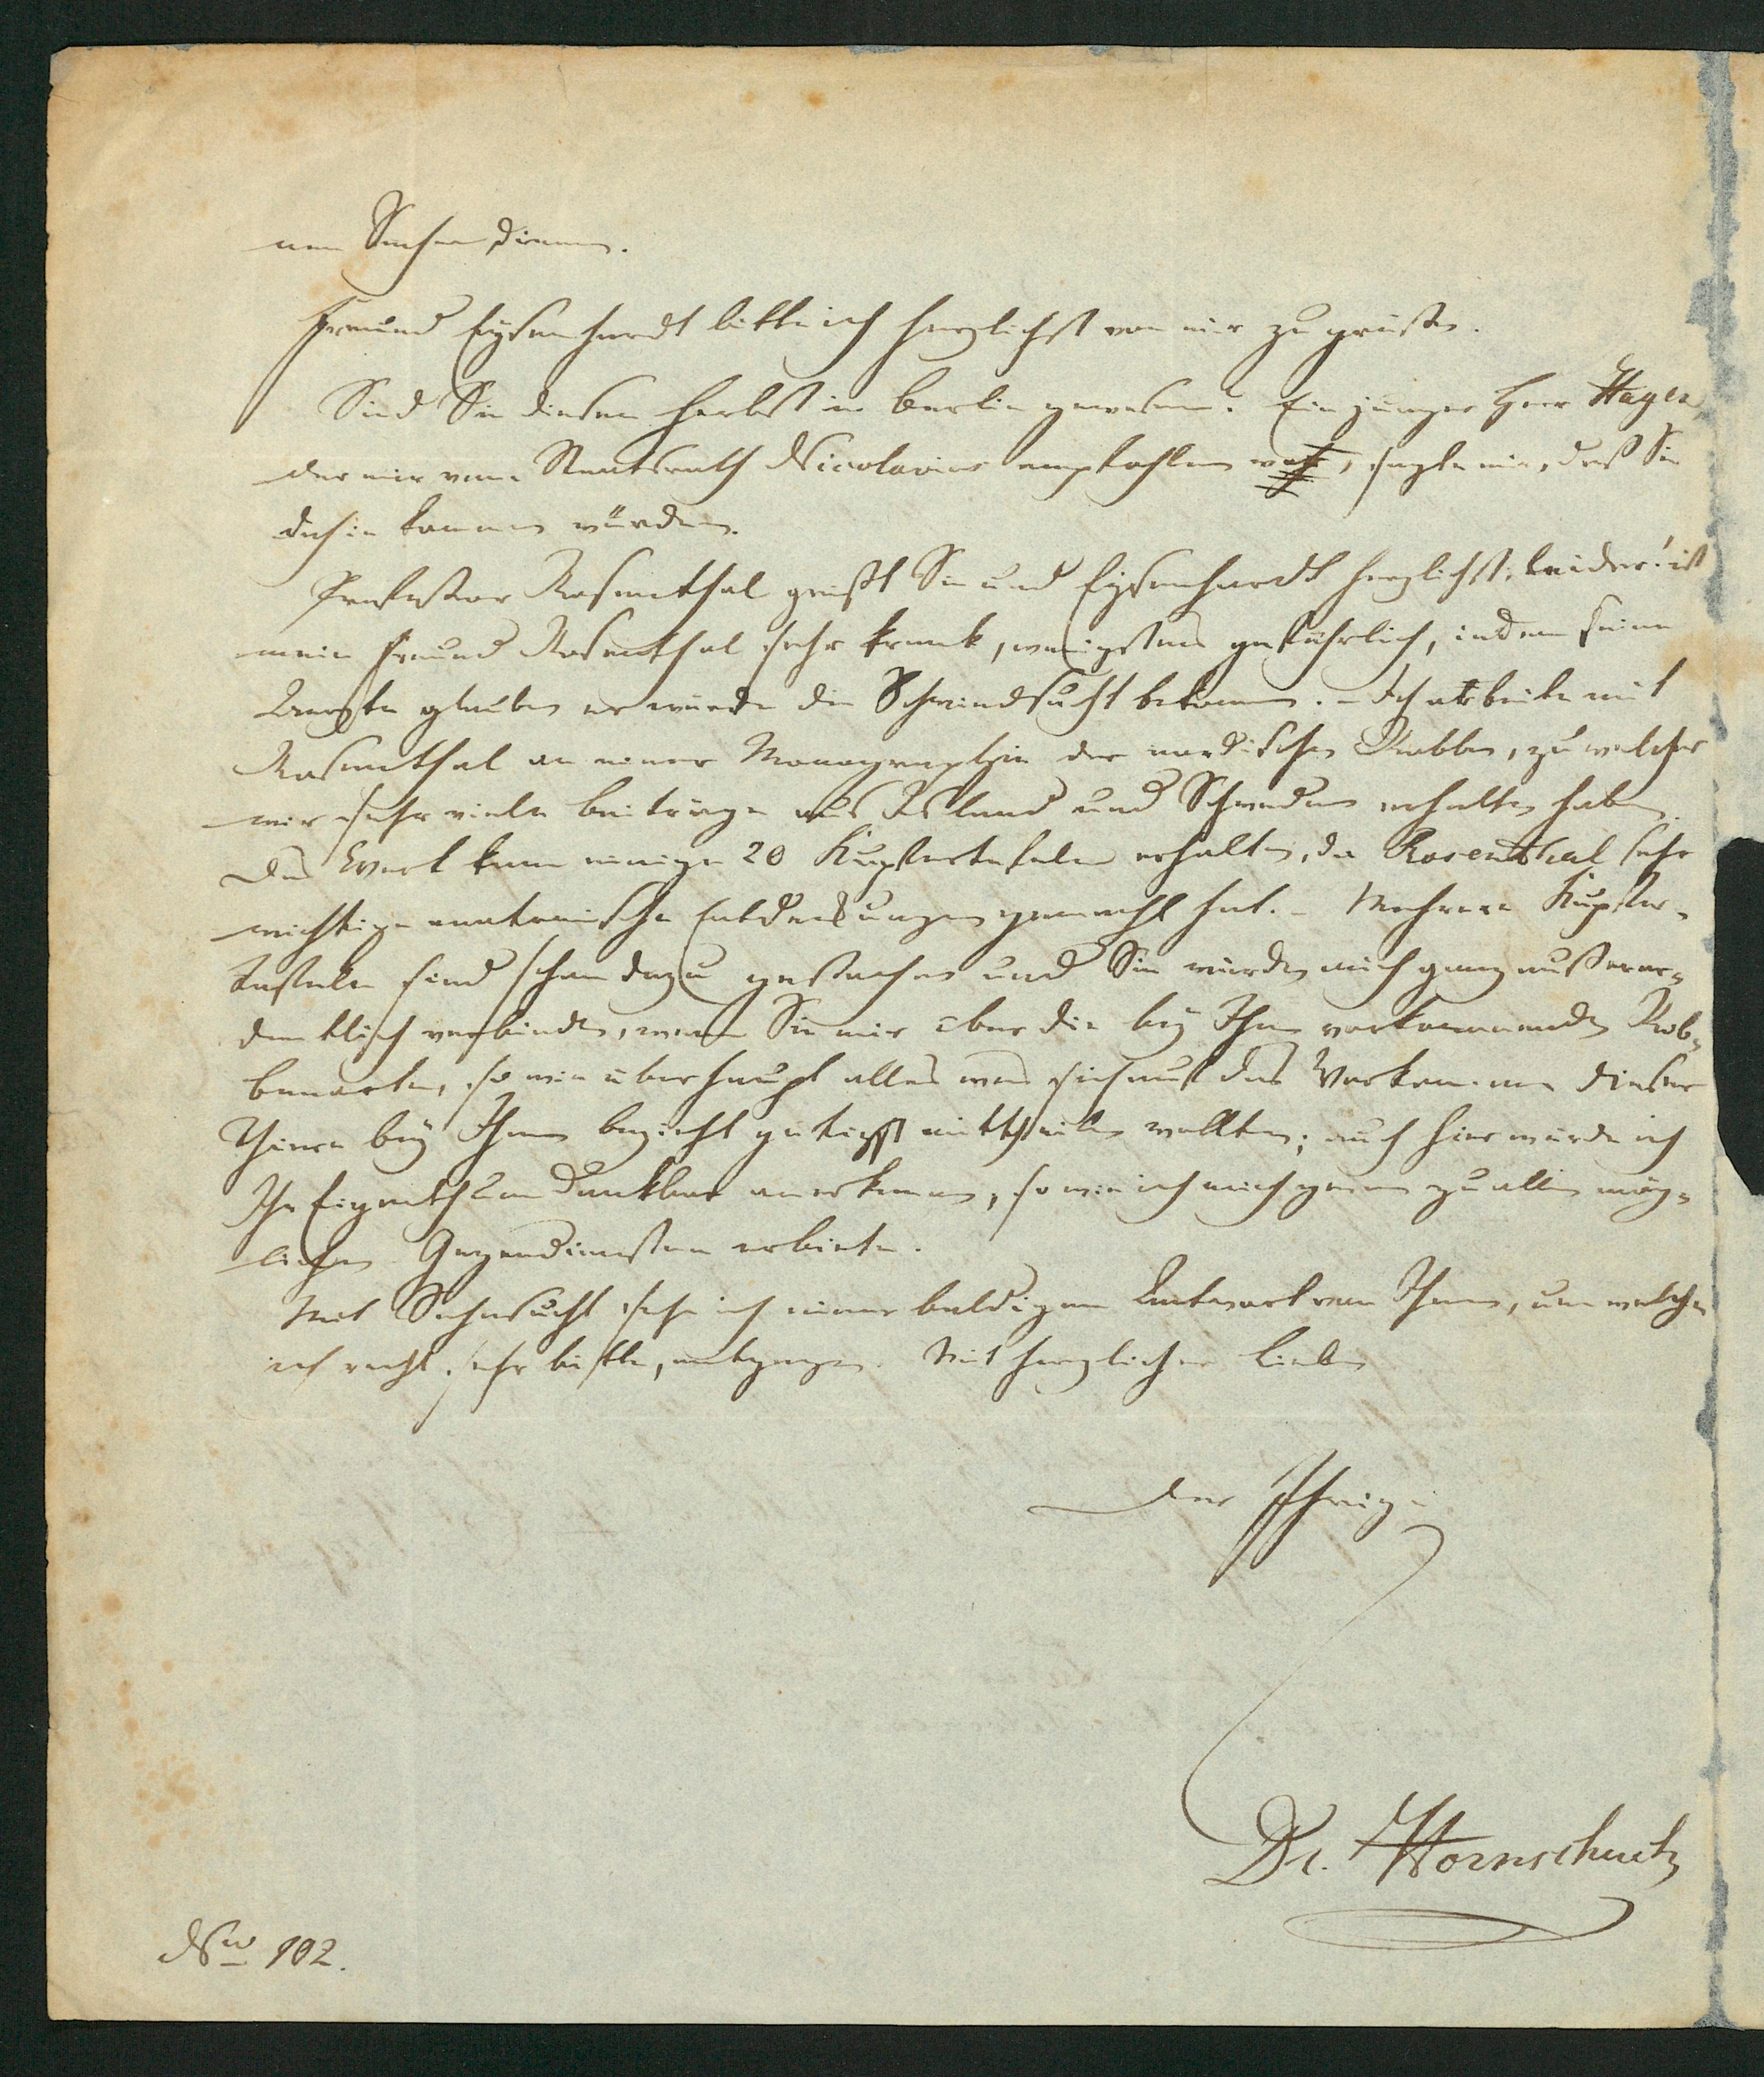 nen Sachen dienen.
Freund Eysenhardt bitte ich herzlichst von mir zu grüßen.
Sind Sie diesen Herbst in Berlin gewesen? Ein junger Herr Hagen,
der mir vom Staatsrath Nicolovius empfohlen, sagte mir, daß Sie
dahin kommen würden.
Professor Rosenthal grüßt Sie und Eysenhardt herzlichst; leider! ist
mein Freund Rosenthal sehr krank, wenigstens gefährlich, indem seine
Aerzte glauben er würde die Schwindsucht bekommen. – Ich arbeite mit
Rosenthal an einer Monographie der nordischen Robben, zu welcher
wir sehr viele Beiträge aus Island und Schweden erhalten haben.
Das Werk kann einige 20 Kupfertafeln erhalten, da Rosenthal sehr
wichtige anatomische Entdeckungen gemacht hat. – Mehrere Kupfer-
tafeln sind schon dazu gestochen und Sie würden mich ganz außeror-
dentlich verbinden, wenn Sie mir über die bey Ihnen vorkommenden Rob-
benarten, so wie überhaupt alles was sich auf das Vorkommen dieser
Thiere bey Ihnen bezieht gütigst mittheilen wollten; auch hier würde ich
Ihr Eigenthum dankbar anerkennen, so wie ich mich gern zu allen mög-
lichen Gegendiensten erbiete.
Mit Sehnsucht sehe ich einer baldigen Antwort von Ihnen, um welche
ich recht sehr bitte, entgegen. Mit herzlicher Liebe
der Ihrige
Dr. Hornschuch
No 102.